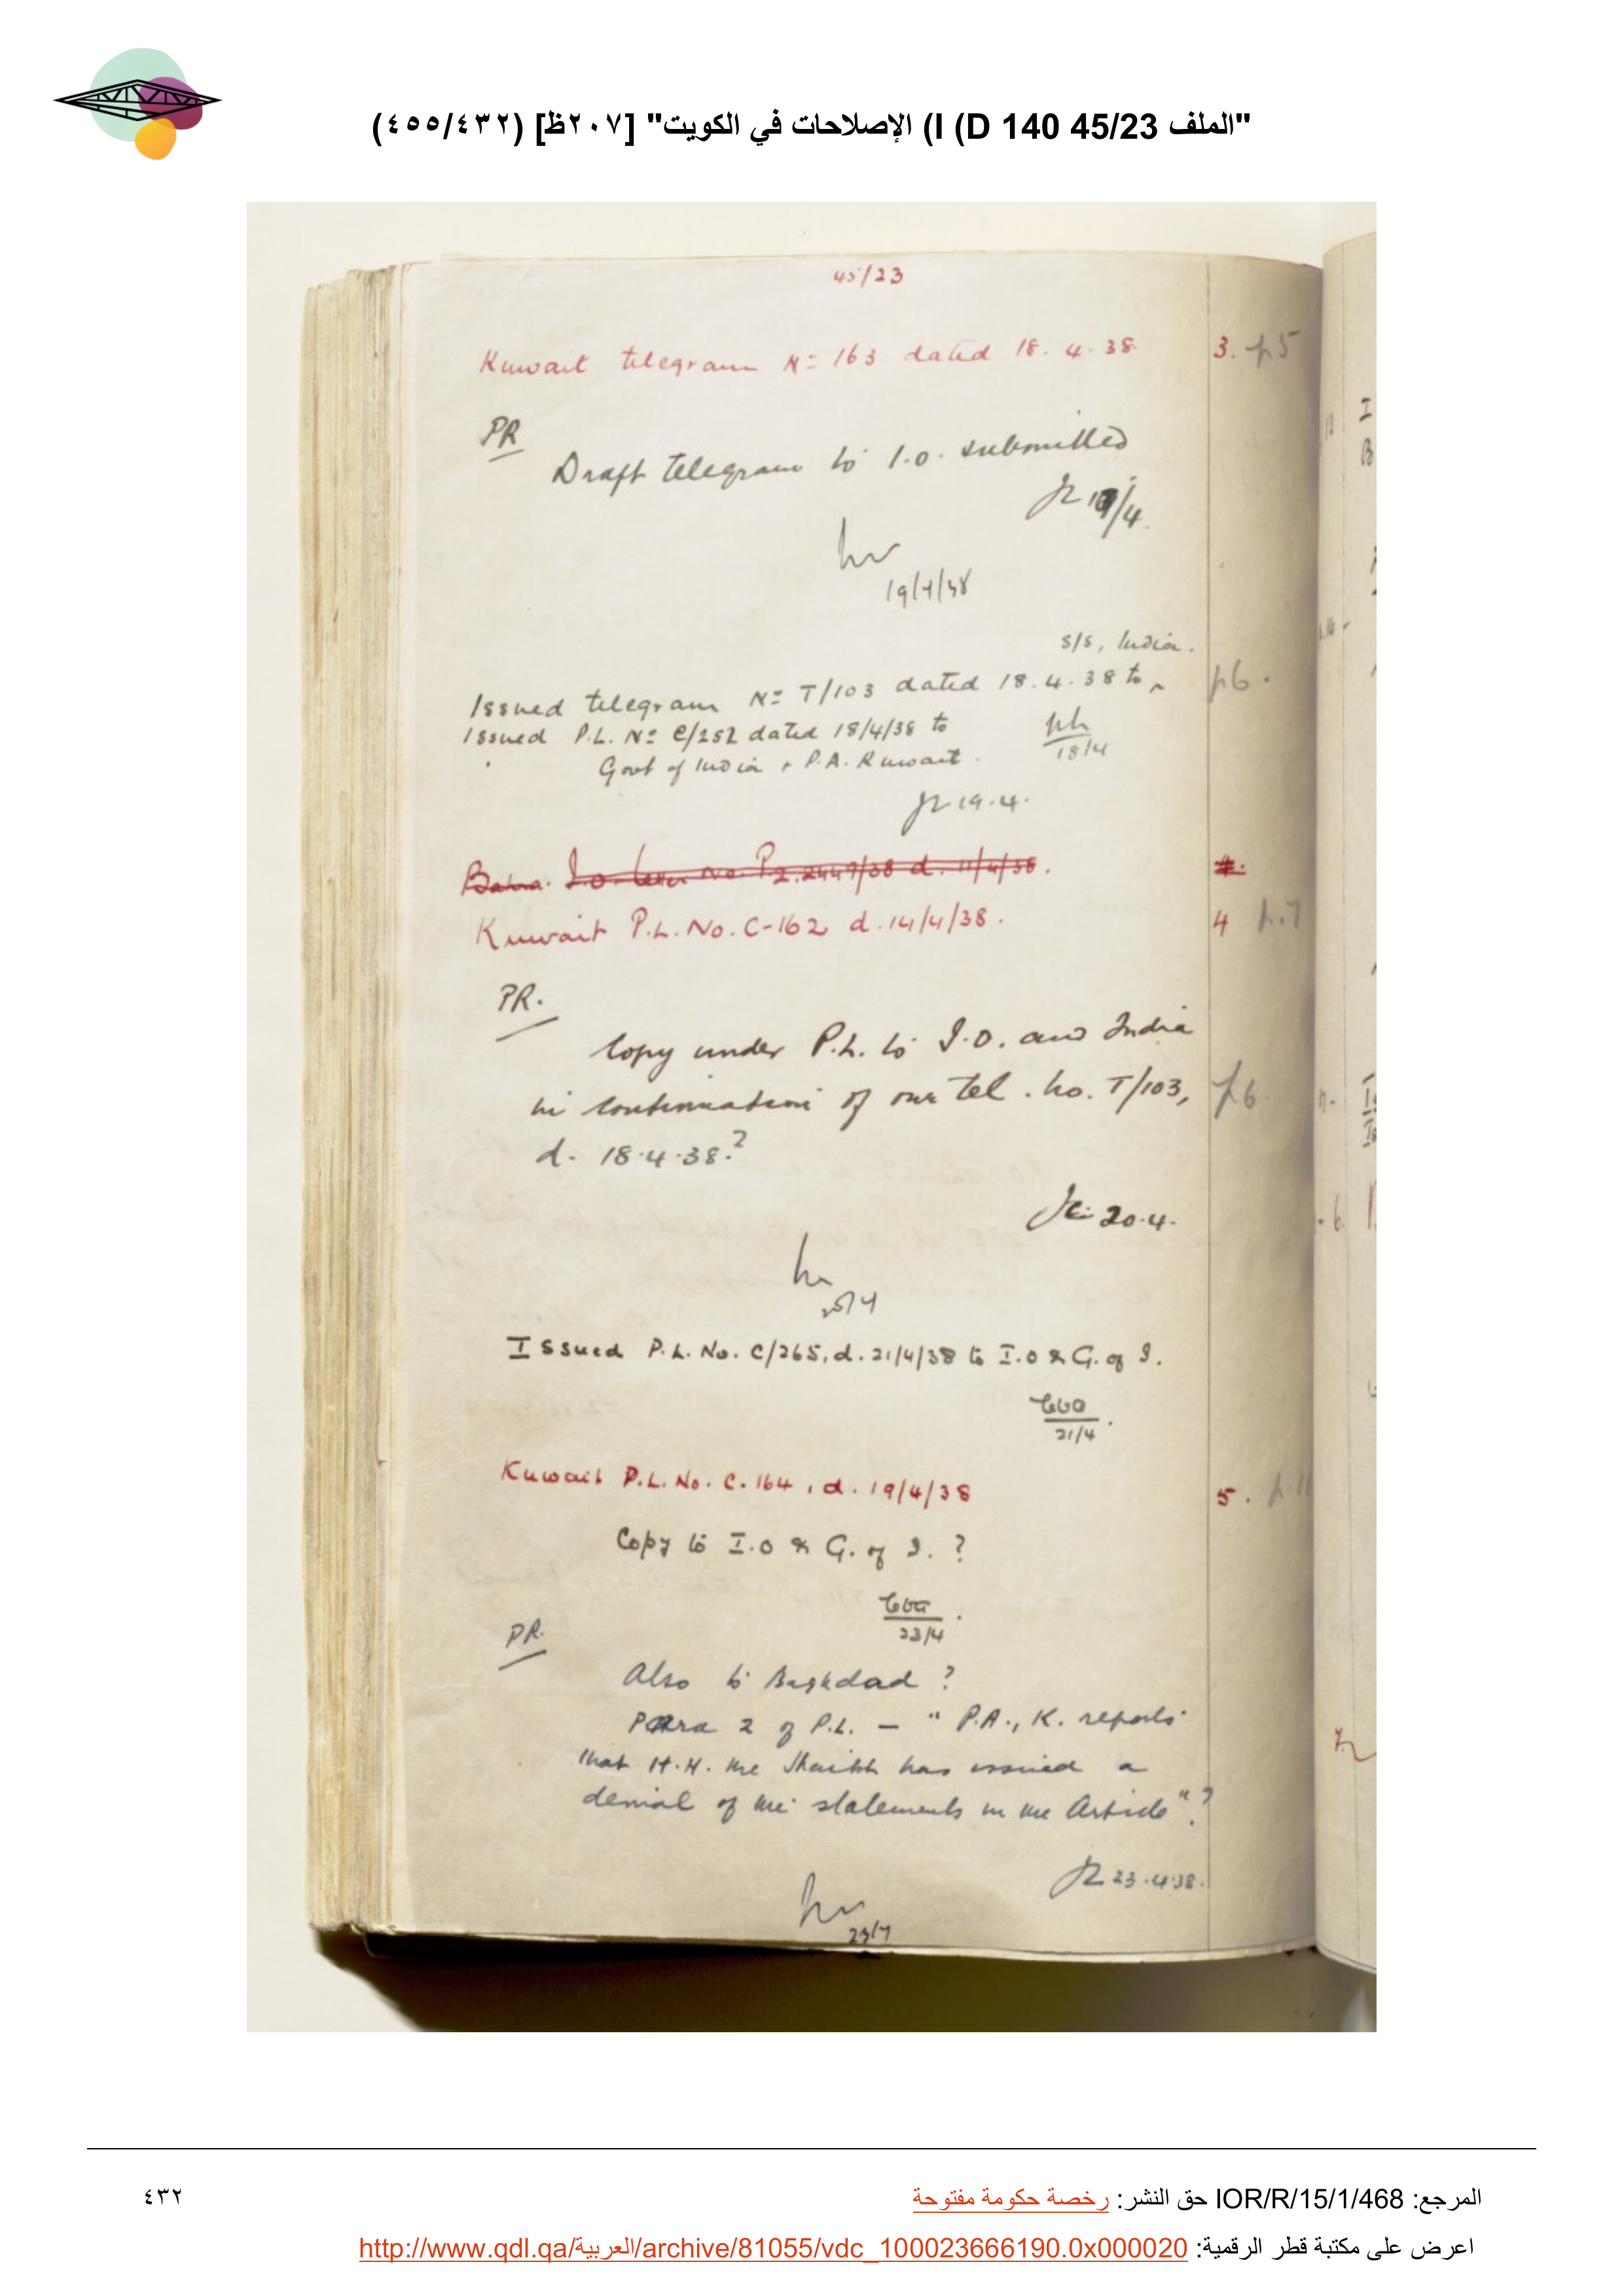 "الملف 45/23 I (D 140) الإصلاحات في الكويت" [٢٠٧ظ] (٤٥٥/٤٣٢)
45/23
Kuwait telegram No 163 dated 18.4.38 3. p.5
PR
Draft telegram to I.O. submitted
/4.
19/4/38
S/S, India.
Issued telegram No T/103 dated 18.4.38 to ^ p6.
Issued P.L. No C/252 dated 18/4/38 to
18/4
Govt of India & P.A. Kuwait.
19.4.
I.O. letter No. P.Z. 2449/38 d. 11/4/38.
Kuwait P.L. No. C-162 d. 14/4/38. 4 p.7
PR.
Copy under P.L. to I.O. and India
in continuation of our tel. no. T/103, p6.
d. 18.4.38.?
20.4.
Issued P.L. No. C/265, d. 21/4/38 to I.O & G. of I.
21/4.
Kuwait P.L. No. C.164, d. 19/4/38 5. p.11
Copy to I.O & G. of I. ?
23/4.
PR.
Also to Baghdad ?
Para 2 of P.L. — "P.A., K. reports
that H.H. the Shaikh has issued a
denial of the statements in the Article".?
23.4.38.
23/4
المرجع: IOR/R/15/1/468 حق النشر: رخصة حكومة مفتوحة
٤٣٢
اعرض على مكتبة قطر الرقمية: http://www.qdl.qa/العربية/archive/81055/vdc_100023666190.0x000020